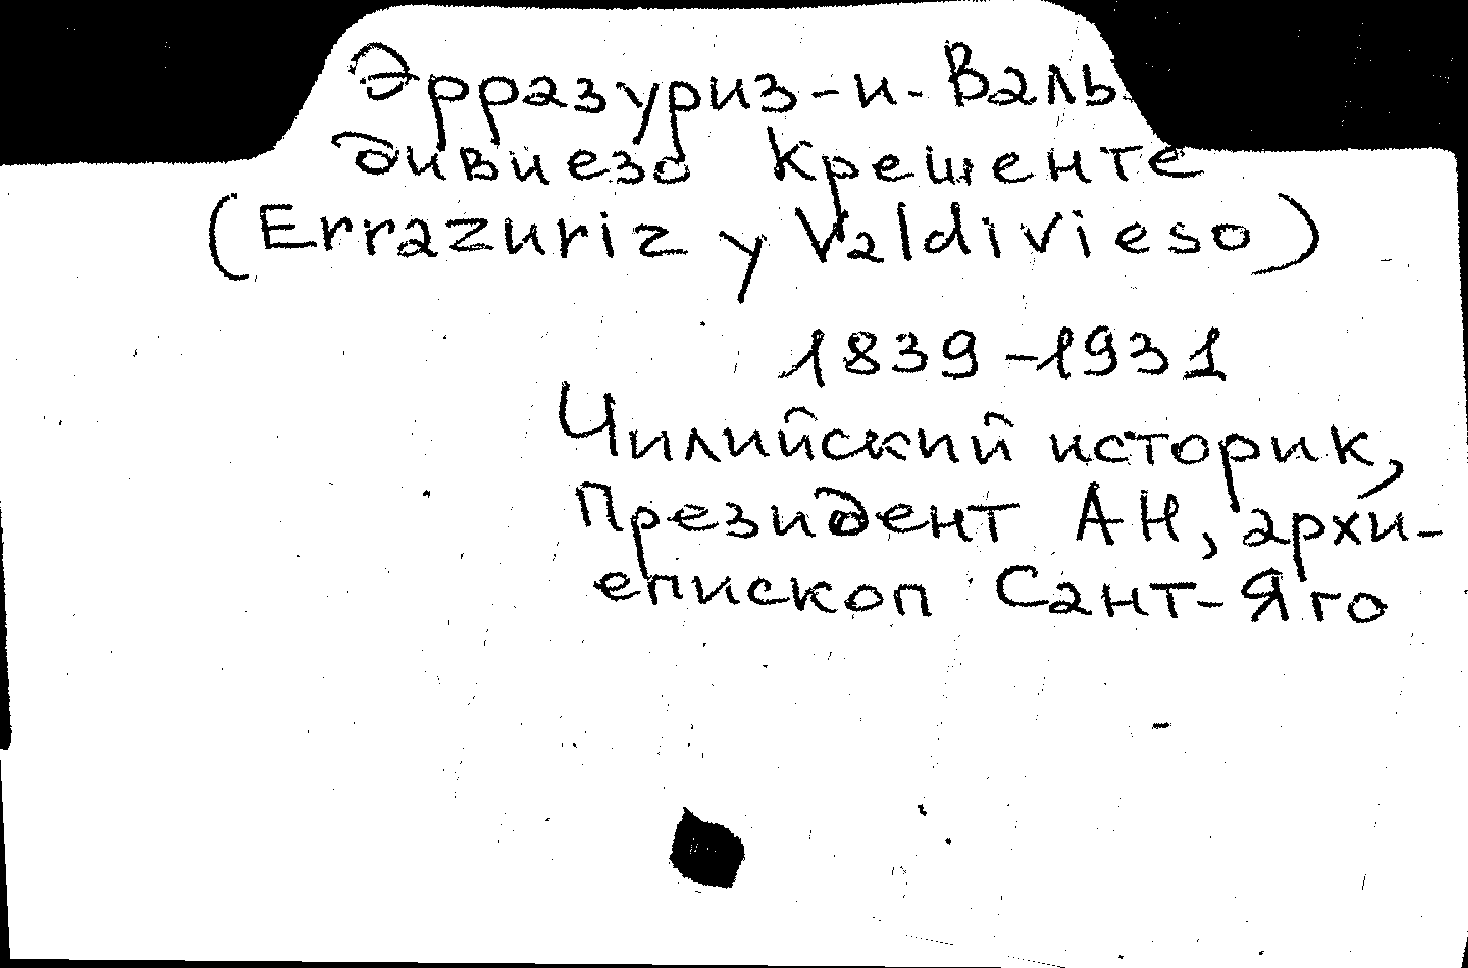 Эрразуриз-и-Валь-
дивиезо Крешенте
(Errazuriz y Valdivieso)
1839-1931
Чилийский историк,
Президент АН, архи-
епископ Сант-Яго